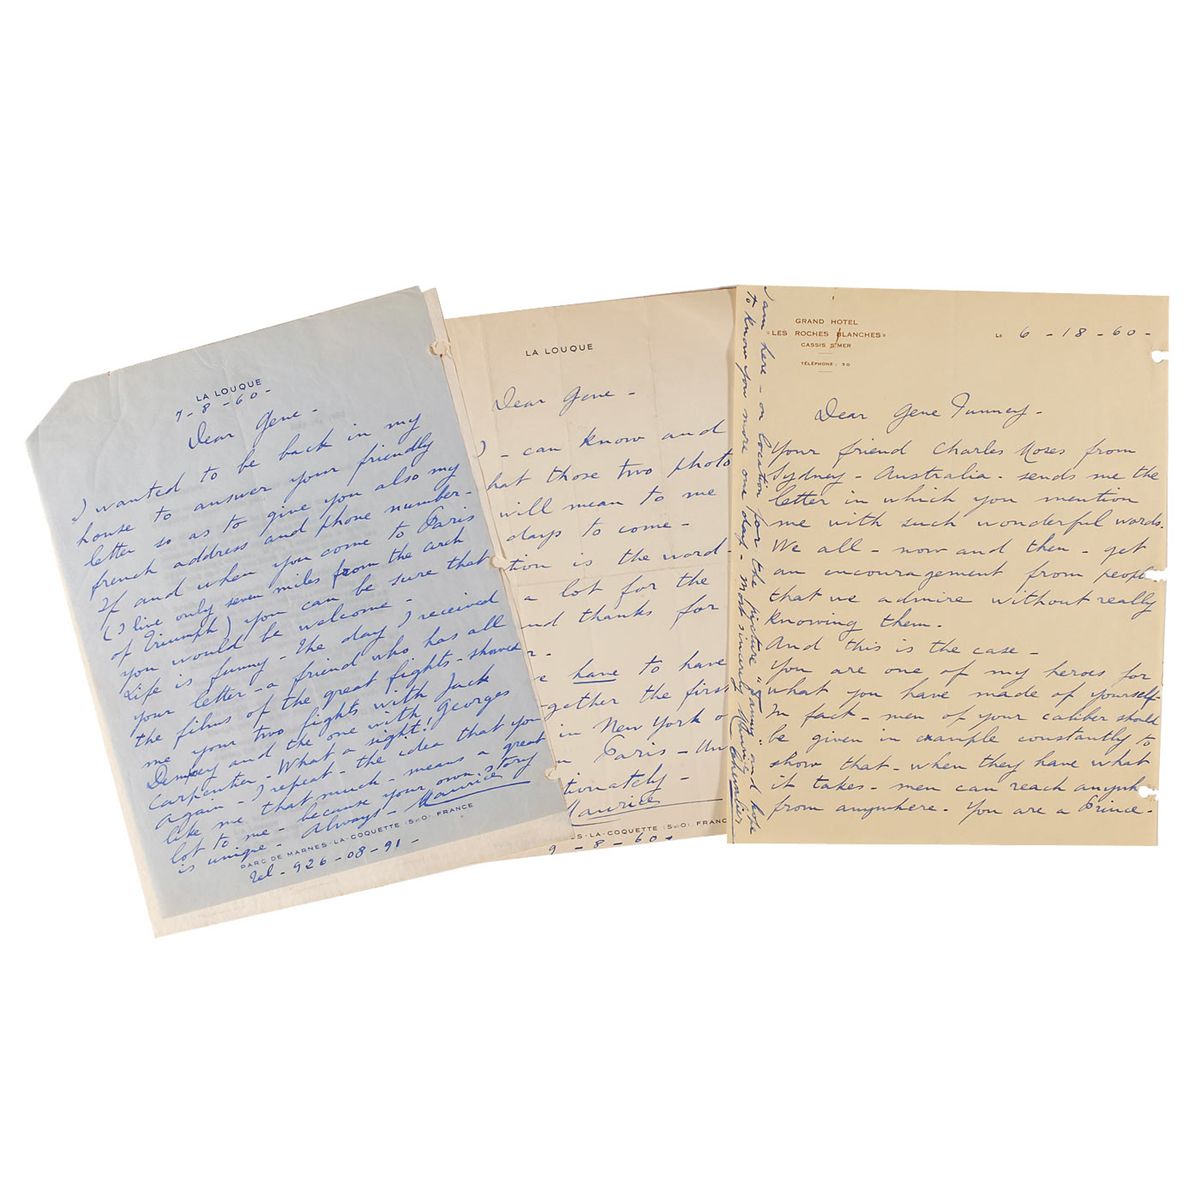 LA LOUQUE
7-8-60-
Dear Gene-
I wanted to be back in my
house to answer your friendly
letter so as to give you also my
french address and phone number-
If and when you come to Paris
(I live only seven miles from the arch
of Triumph) you can be sure that
you would be welcome-
Life is funny- the day I received
your letter- a friend who has all
the films of the great fights- showed
me your two fights with Jack
Dempsey and the one with Georges
Carpentier- What a sight!
Again- I repeat- the idea that you
like me that much- means a great
lot to me- because your own story
is unique- Always- Maurice
PARC DE MARNES-LA-COQUETTE (S&O) FRANCE
Tel- 926-08-91-
LA LOUQUE
Dear Gene-
I- can know and
hat those two photo
will mean to me
days to come-
tion is the word-
a lot for the
nd thanks for
e have to have
gether the first
in New York o
Paris- Un
tinately-
Maurice
ES-LA-COQUETTE (S&O) FRANC
9-8-60
GRAND HOTEL
"LES ROCHES BLANCHES"
CASSIS S/MER
TÉLÉPHONE : 30
LE 6-18-60-
Dear Gene Tunney-
Your friend Charles Moses from
Sydney- Australia- sends me the
letter in which you mention
me with such wonderful words.
We all- now and then- get
an encouragement from people
that we admire without really
knowing them-
And this is the case-
You are one of my heroes for
what you have made of yourself
In fact- men of your caliber should
be given in example constantly to
show that- when they have what
it takes- men can reach anywh
from anywhere- You are a Prince-
I am here- on location for the picture "Fanny" and hope
to know you more one day- Most sincerely Maurice Chevalier